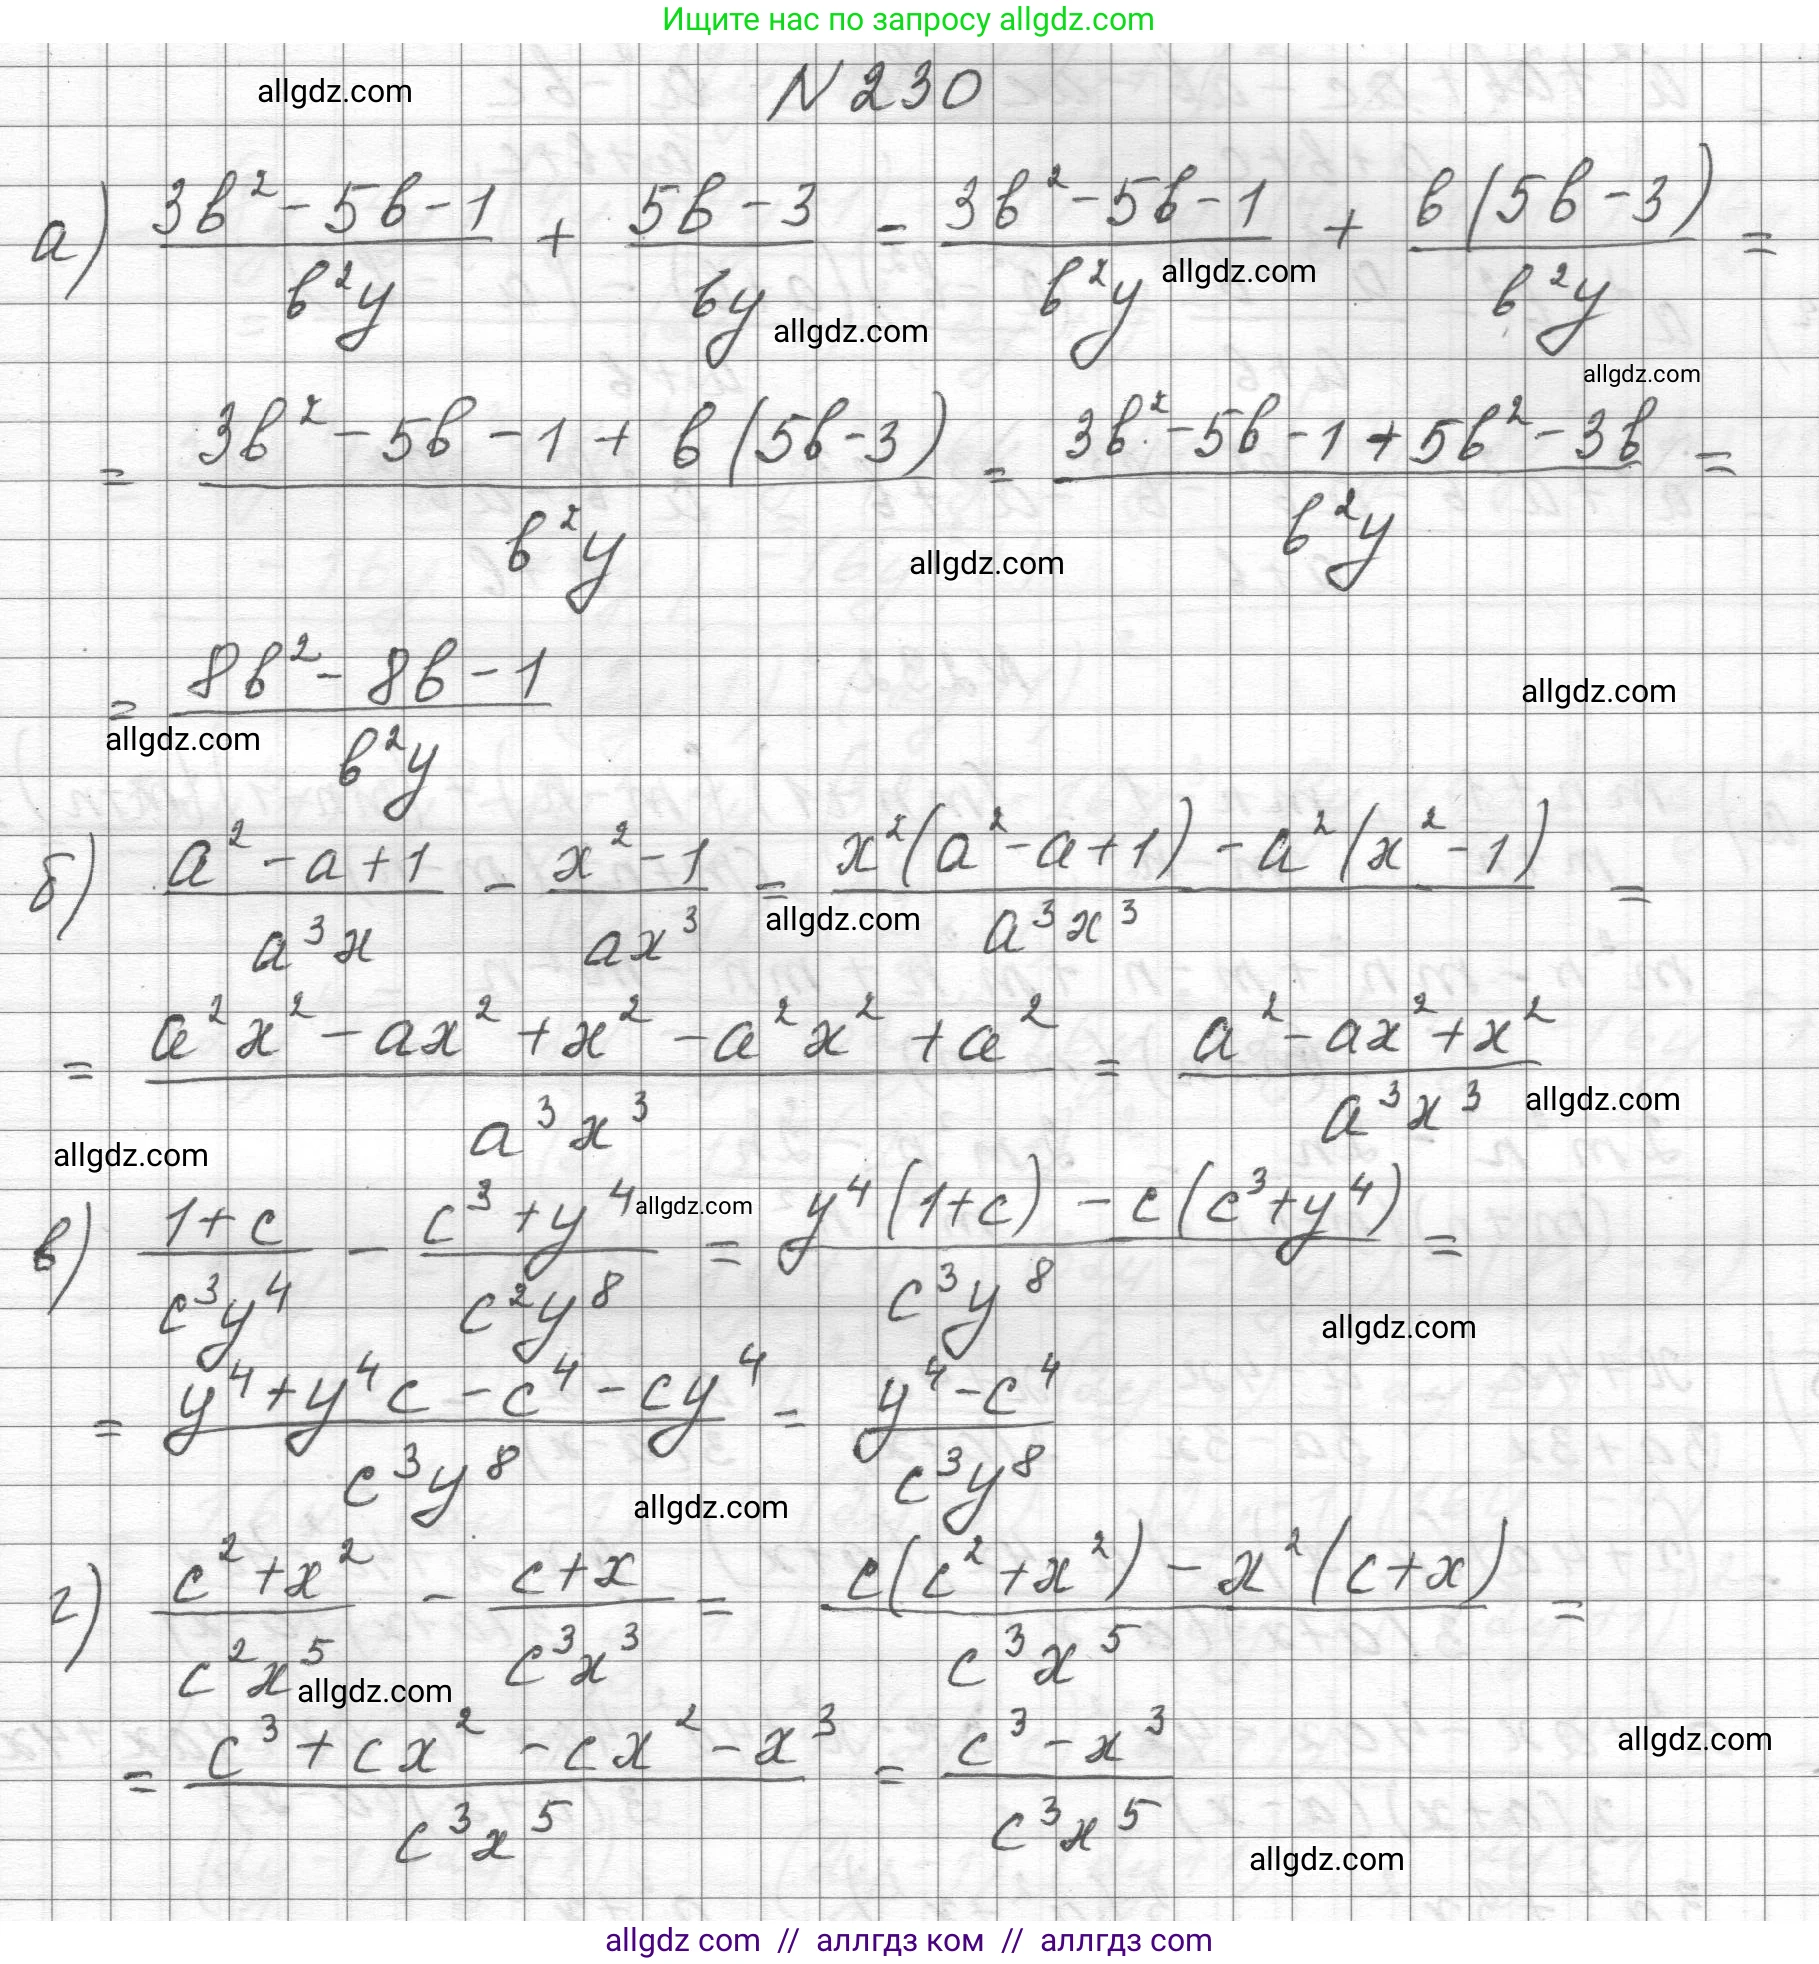 Ищите нас по запросу allgdz.com
allgdz.com
N 230
а) (3b² - 5b - 1)/(b²y) + (5b - 3)/(by) = (3b² - 5b - 1)/(b²y) + (b(5b - 3))/(b²y) =
allgdz.com
allgdz.com
allgdz.com
= (3b² - 5b - 1 + b(5b - 3))/(b²y) = (3b² - 5b - 1 + 5b² - 3b)/(b²y) =
allgdz.com
= (8b² - 8b - 1)/(b²y)
allgdz.com
allgdz.com
б) (a² - a + 1)/(a³x) - (x² - 1)/(ax³) = (x²(a² - a + 1) - a²(x² - 1))/(a³x³) =
allgdz.com
= (a²x² - ax² + x² - a²x² + a²)/(a³x³) = (a² - ax² + x²)/(a³x³)
allgdz.com
allgdz.com
в) (1 + c)/(c³y⁴) - (c³ + y⁴)/(c²y⁸) = (y⁴(1 + c) - c(c³ + y⁴))/(c³y⁸) =
allgdz.com
allgdz.com
= (y⁴ + y⁴c - c⁴ - cy⁴)/(c³y⁸) = (y⁴ - c⁴)/(c³y⁸)
allgdz.com
г) (c² + x²)/(c²x⁵) - (c + x)/(c³x³) = (c(c² + x²) - x²(c + x))/(c³x⁵) =
allgdz.com
= (c³ + cx² - cx² - x³)/(c³x⁵) = (c³ - x³)/(c³x⁵)
allgdz.com
allgdz.com
allgdz com // аллгдз ком // аллгдз com